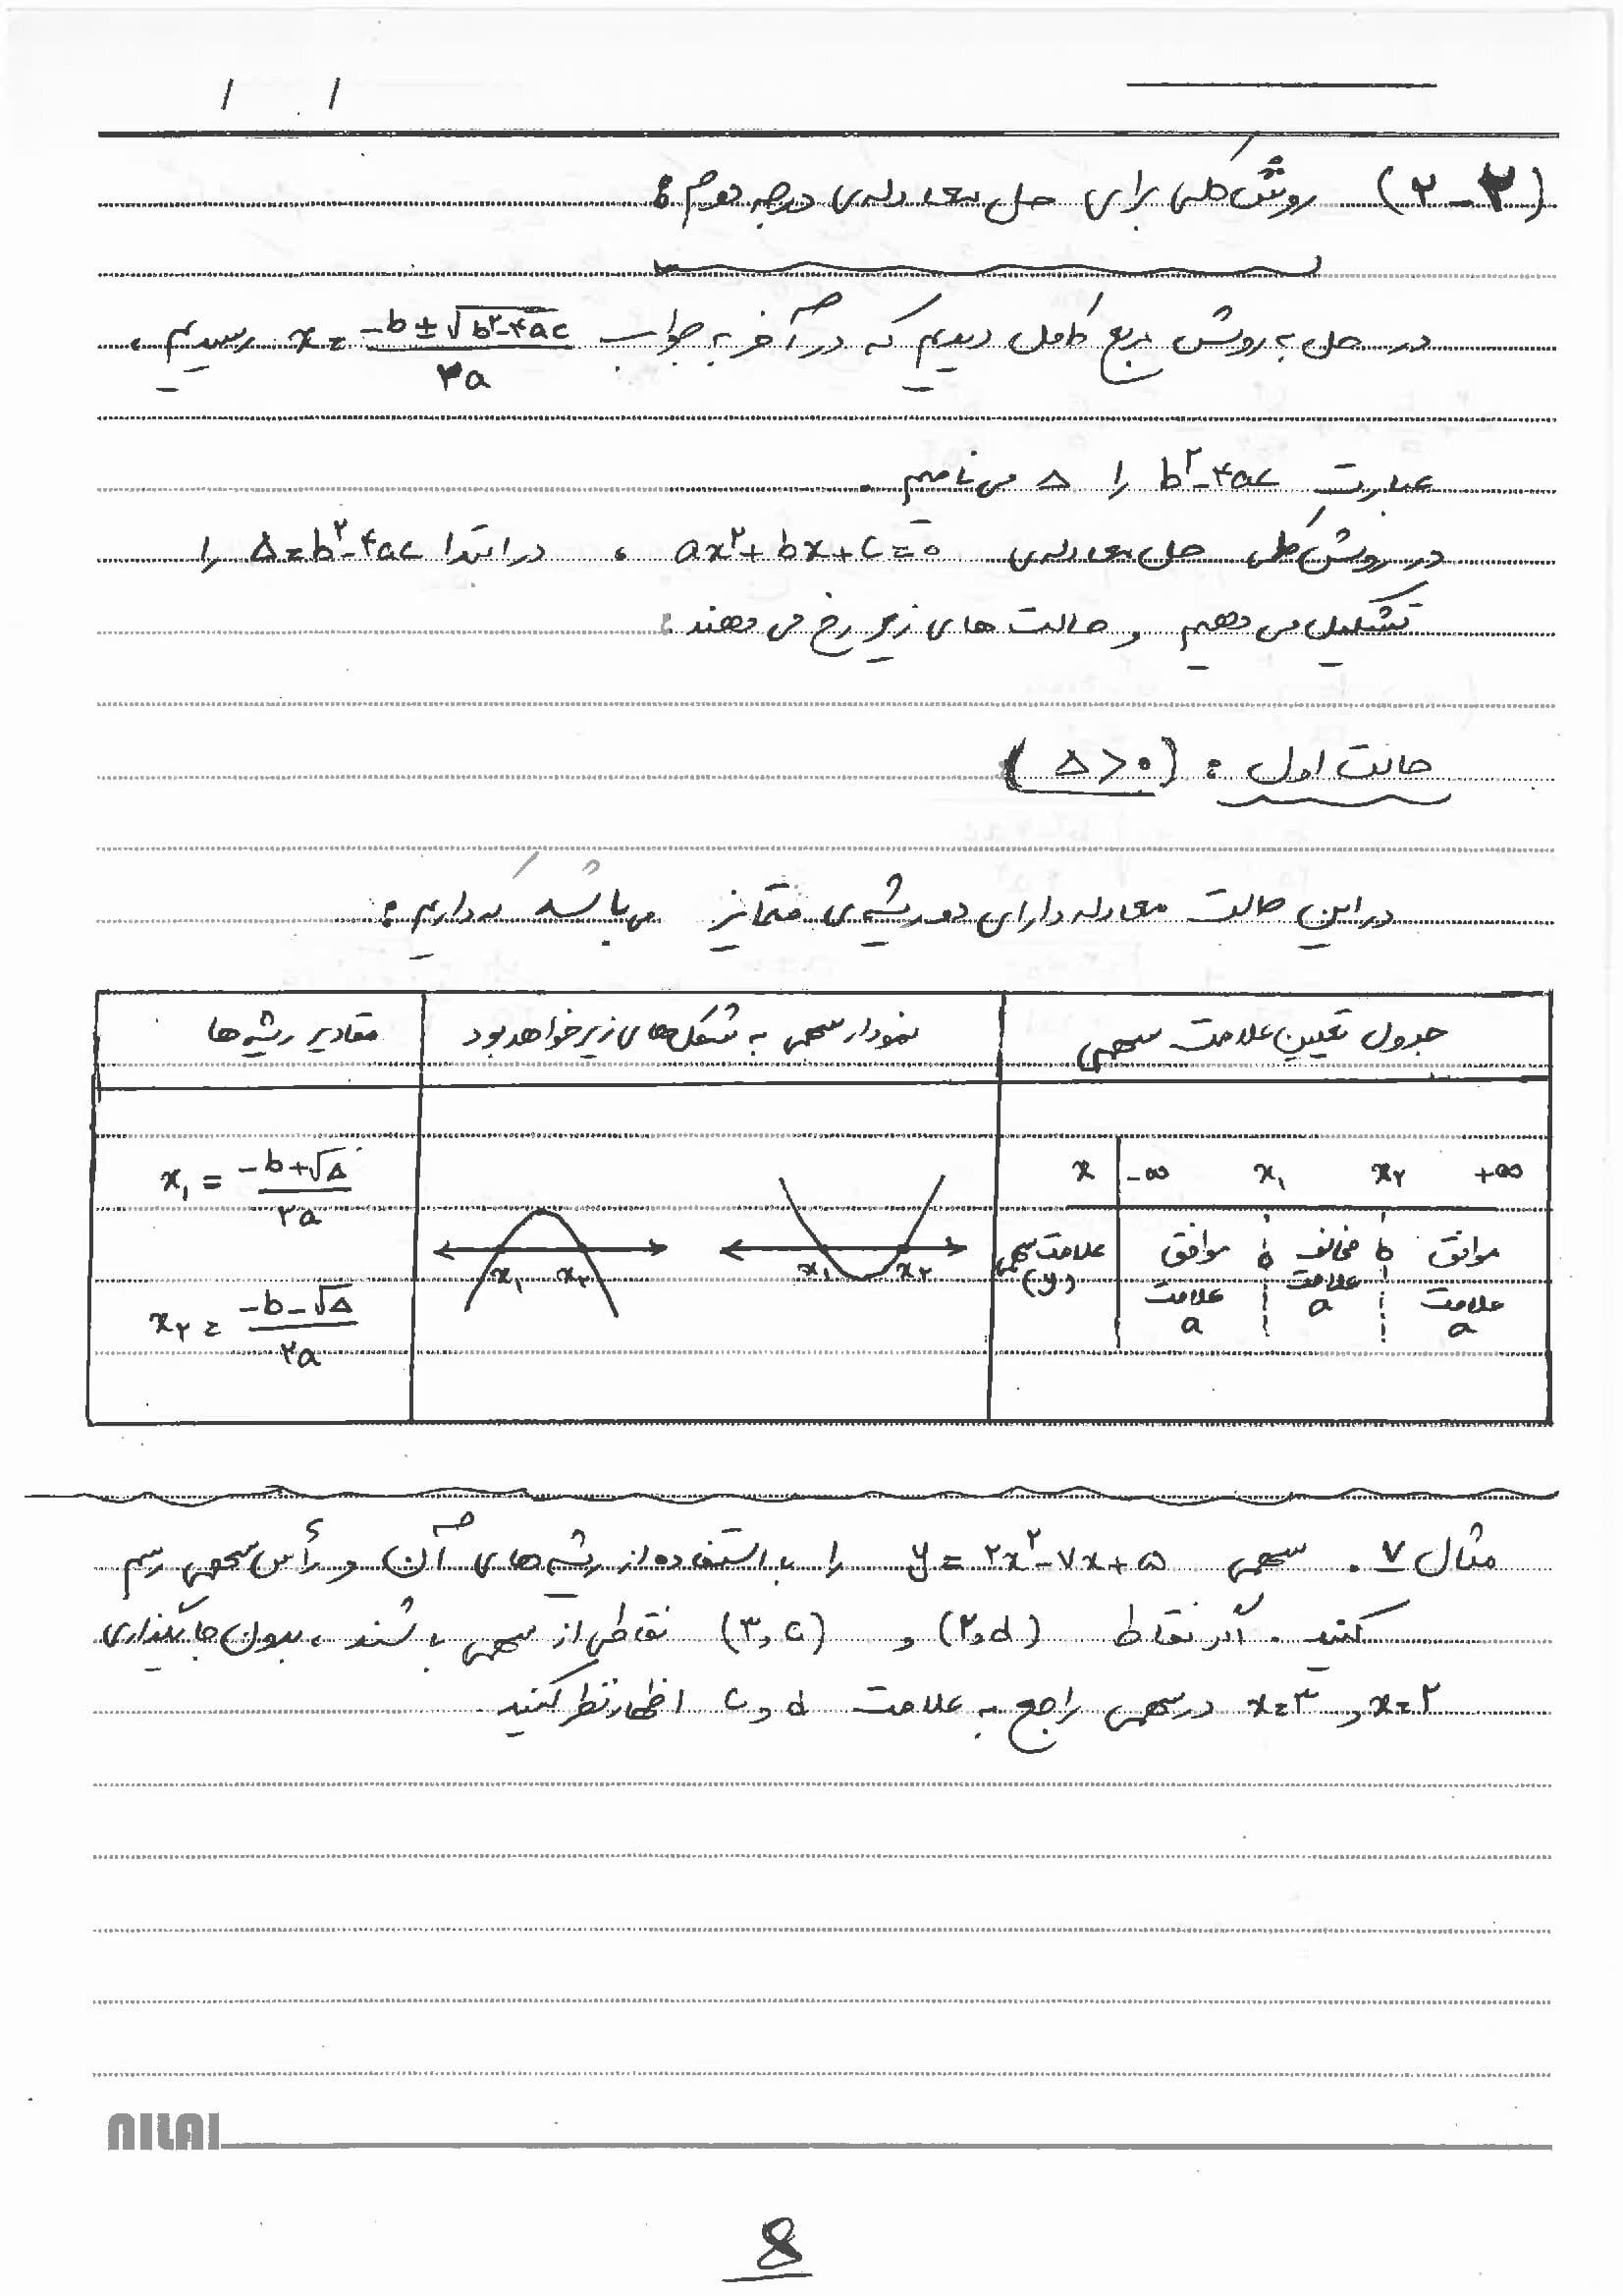 / /
(۲-۳) روش کلی برای حل معادله‌ی درجه دوم :
در حل به روش مربع کامل دیدیم که در آخر به جواب x = (-b ± √(b۲-۴ac)) / ۲a رسیدیم ،
عبارت b۲-۴ac را Δ می‌نامیم .
در روش کلی حل معادله‌ی ax۲+bx+c=۰ ، در ابتدا Δ=b۲-۴ac را
تشکیل می‌دهیم و حالت های زیر رخ می‌دهند :
حالت اول : (Δ>۰)
در این حالت معادله دارای دو ریشه‌ی متمایز می‌باشد که داریم :
جدول تعیین علامت سهمی
نمودار سهمی به شکل‌های زیر خواهد بود
مقادیر ریشه‌ها
x -∞ x۱ x۲ +∞
علامت سهمی (y) موافق علامت a ۰ مخالف علامت a ۰ موافق علامت a
x۱ x۲
x۱ x۲
x۱ = (-b+√Δ) / ۲a
x۲ = (-b-√Δ) / ۲a
مثال ۷ . سهمی y = ۲x۲-۷x+۵ را با استفاده از ریشه‌های آن و رأس سهمی رسم
کنید . اگر نقاط (۲,d) و (۳,c) نقاطی از سهمی باشند ، بدون جایگذاری
x=۲ و x=۳ در سهمی راجع به علامت d و c اظهار نظر کنید .
NILAI
8